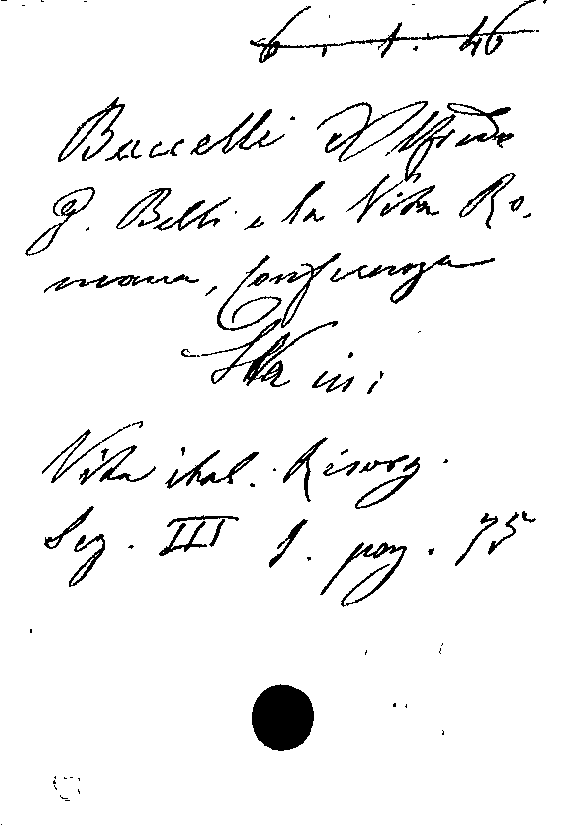 6. 1. 46
Baccelli Alfredo
G. Belli e la Vita Ro-
mana, Conferenza
Sta in:
Vita ital. Risorg.
Seg. III 1. pag. 75